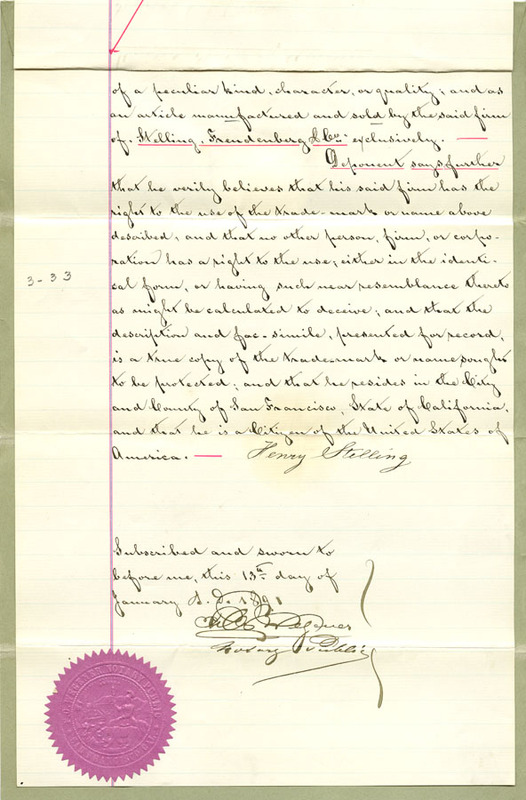 of a peculiar kind, character, or quality; and as
an article manufactured and sold by the said firm
of Stelling, Freudenberg & Co. exclusively.
Deponent says further
that he verily believes that his said firm has the
right to the use of the trade-mark or name above
described, and that no other person, firm, or corpo-
ration has a right to the use, either in the identi-
3-33
cal form, or having such near resemblance thereto
as might be calculated to deceive; and that the
description and fac-simile, presented for record,
is a true copy of the trade-mark or name sought
to be protected; and that he resides in the City
and County of San Francisco, State of California,
and that he is a Citizen of the United States of
America.
Henry Stelling
Subscribed and sworn to
before me, this 13th day of
January A. D. 1891
Notary Public